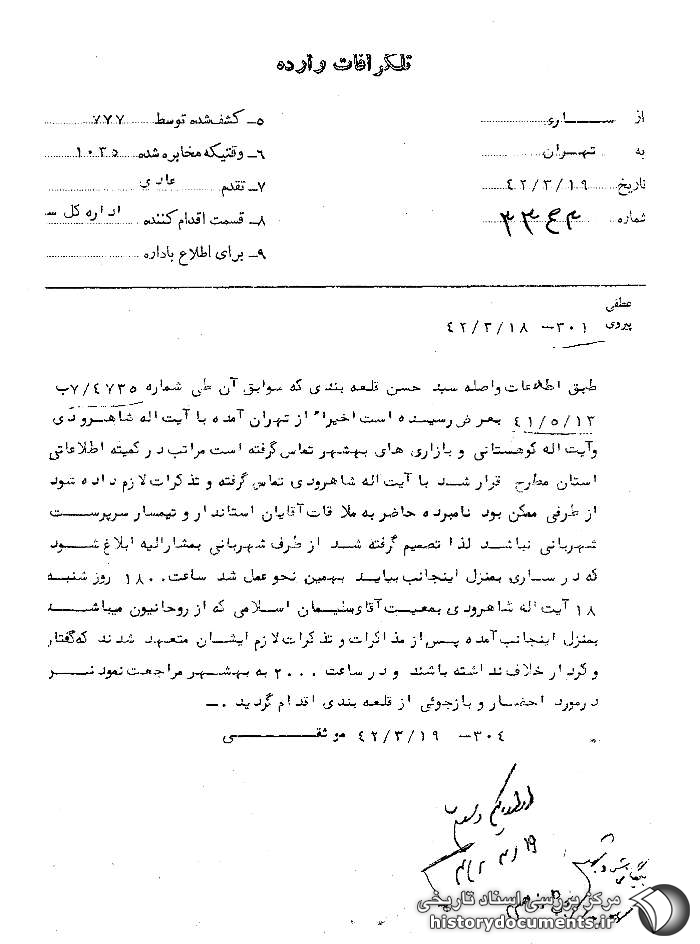 تلگرافات وارده
از ساری
به تهران
تاریخ ۴۲/۳/۱۹
شماره
۵ـ کشف شده توسط ۷۷۷
۶ـ وقتیکه مخابره شده ۱۰۳۵
۷ـ تقدم عادی
۸ـ قسمت اقدام کننده اداره کل س
۹ـ برای اطلاع باداره
عطفی
پیروی ۳۰۱ – ۴۲/۳/۱۸
طبق اطلاعات واصله سید حسن قلعه بندی که سوابق آن طی شماره ۷/۴۷۳۵ب
۴۱/۵/۱۳ بعرض رسیده است اخیرا" از تهران آمده با آیت اله شاهرودی
وآیت اله کوهستانی و بازاری های بهشهر تماس گرفته است مراتب در کمیته اطلاعاتی
استان مطرح قرار شد با آیت اله شاهرودی تماس گرفته و تذکرات لازم داده شود
از طرفی ممکن بود نامبرده حاضر به ملاقات آقایان استاندار و تیمسار سرپرست
شهربانی نباشد لذا تصمیم گرفته شد از طرف شهربانی بمشارالیه ابلاغ شود
که در ساری بمنزل اینجانب بیاید بهمین نحو عمل شد ساعت ۱۸۰۰ روز شنبه
۱۸ آیت اله شاهرودی بمعیت آقای سلیمان اسلامی که از روحانیون میباشد
بمنزل اینجانب آمده پس از مذاکرات و تذکرات لازم ایشان متعهد شدند که گفتار
و کردار خلاف نداشته باشند و در ساعت ۲۰۰۰ به بهشهر مراجعت نمودند
درمورد احضار و بازجوئی از قلعه بندی اقدام گردید .ـ
۳۰۴ – ۴۲/۳/۱۹ موثقی
۱۹/۳/۴۲
مرکز بررسی اسناد تاریخی
historydocuments.ir